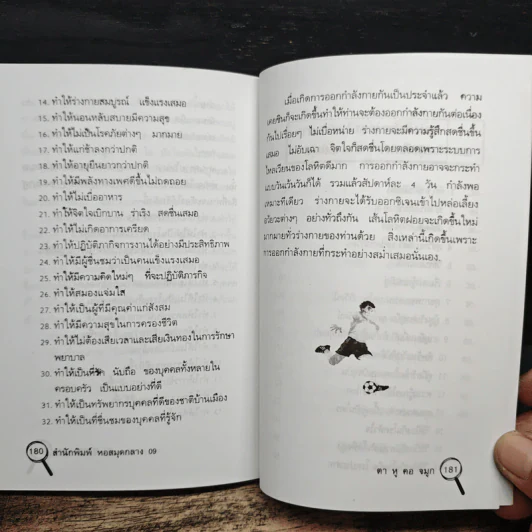 14. ทำให้ร่างกายสมบูรณ์ แข็งแรงเสมอ
15. ทำให้นอนหลับสบายมีความสุข
16. ทำให้ไม่เป็นโรคภัยต่างๆ มากมาย
17. ทำให้แก่ช้าลงกว่าปกติ
18. ทำให้อายุยืนยาวกว่าปกติ
19. ทำให้มีพลังทางเพศดีขึ้นไม่ถดถอย
20. ทำให้ไม่เบื่ออาหาร
21. ทำให้จิตใจเบิกบาน ร่าเริง สดชื่นเสมอ
22. ทำให้ไม่เกิดอาการเครียด
23. ทำให้ปฏิบัติภารกิจการงานได้อย่างมีประสิทธิภาพ
24. ทำให้มีผู้ชื่นชมว่าเป็นคนแข็งแรงเสมอ
25. ทำให้มีความคิดใหม่ๆ ที่จะปฏิบัติภารกิจ
26. ทำให้สมองแจ่มใส
27. ทำให้เป็นผู้ที่มีคุณค่าแก่สังคม
28. ทำให้มีความสุขในการครองชีวิต
29. ทำให้ไม่ต้องเสียเวลาและเสียเงินทองในการรักษา
พยาบาล
30. ทำให้เป็นที่รัก นับถือ ของบุคคลทั้งหลายใน
ครอบครัว เป็นแบบอย่างที่ดี
31. ทำให้เป็นทรัพยากรบุคคลที่ดีของชาติบ้านเมือง
32. ทำให้เป็นที่ชื่นชมของบุคคลที่รู้จัก
180 สำนักพิมพ์ หอสมุดกลาง 09
เมื่อเกิดการออกกำลังกายกันเป็นประจำแล้ว ความ
เคยชินก็จะเกิดขึ้นทำให้ท่านจะต้องออกกำลังกายกันต่อเนื่อง
กันไปเรื่อยๆ ไม่เบื่อหน่าย ร่างกายจะมีความรู้สึกสดชื่นขึ้น
เสมอ ไม่อับเฉา จิตใจก็สดชื่นโดยตลอดเพราะระบบการ
ไหลเวียนของโลหิตดีมาก การออกกำลังกายอาจจะกระทำ
แบบวันเว้นวันก็ได้ รวมแล้วสัปดาห์ละ 4 วัน กำลังพอ
เหมาะทีเดียว ร่างกายจะได้รับออกซิเจนเข้าไปหล่อเลี้ยง
อวัยวะต่างๆ อย่างทั่วถึงกัน เส้นโลหิตฝอยจะเกิดขึ้นใหม่
มากมายทั่วร่างกายของท่านด้วย สิ่งเหล่านี้เกิดขึ้นเพราะ
การออกกำลังกายที่กระทำอย่างสม่ำเสมอนั่นเอง
ตา หู คอ จมูก 181